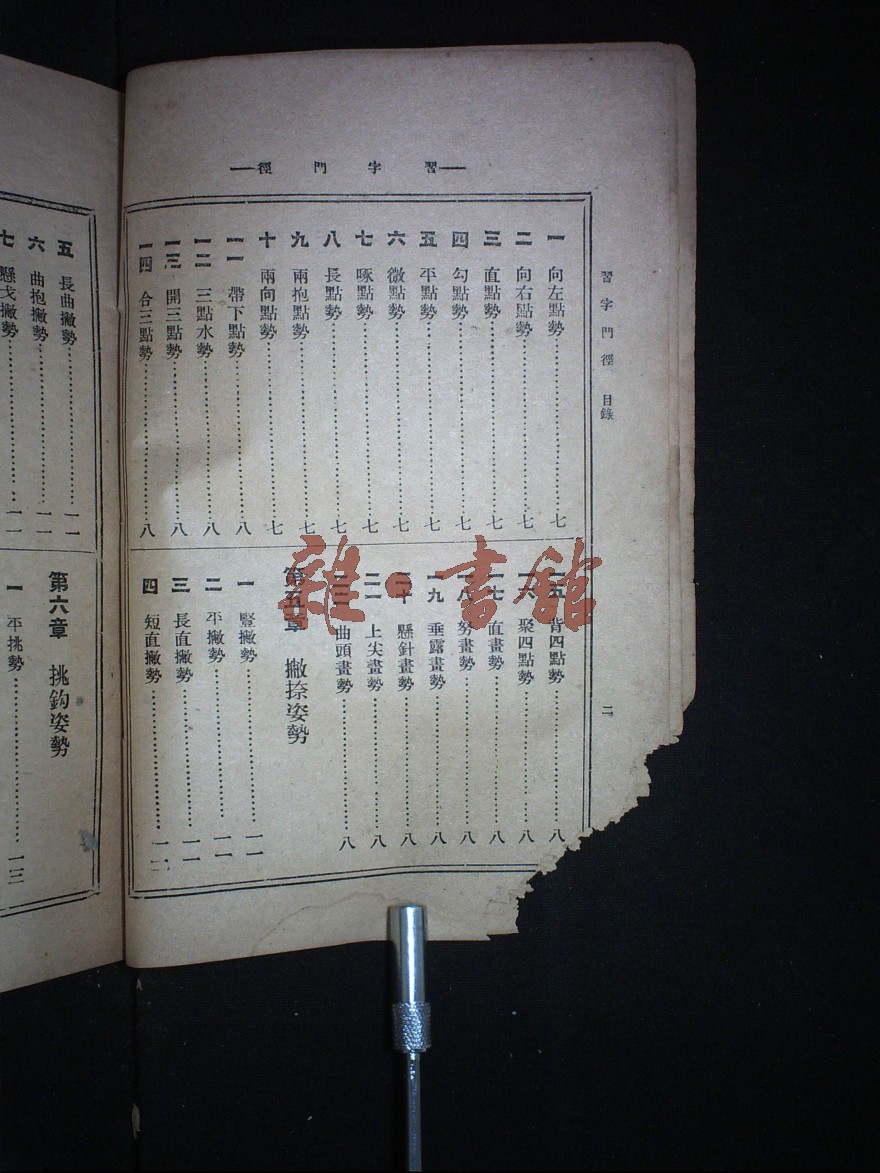 習字門徑
習字門徑 目錄
二
一 向左點勢 七
二 向右點勢 七
三 直點勢 七
四 勾點勢 七
五 平點勢 七
六 微點勢 七
七 啄點勢 七
八 長點勢 七
九 兩抱點勢 七
十 兩向點勢 七
一一 帶下點勢 八
一二 三點水勢 八
一三 開三點勢 八
一四 合三點勢 八
一五 背四點勢 八
一六 聚四點勢 八
一七 直畫勢 八
一八 努畫勢 八
一九 垂露畫勢 八
二十 懸針畫勢 八
二一 上尖畫勢 八
二二 曲頭畫勢 八
第五章 撇捺姿勢
一 豎撇勢 一一
二 平撇勢 一一
三 長直撇勢 一一
四 短直撇勢
五 長曲撇勢 一一
六 曲抱撇勢 一一
七 懸戈撇勢 一一
第六章 挑鈎姿勢
一 平挑勢 一三
雜·書館